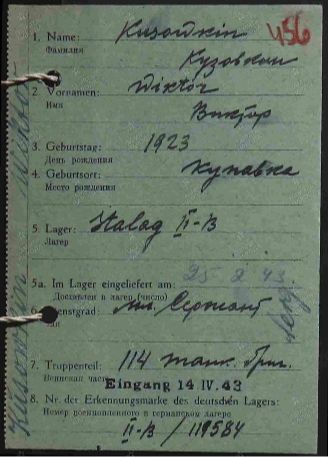 456
1. Name: Kusowkin
Фамилия
Кузовкин
2. Vornamen: Wiktor
Имя
Виктор
3. Geburtstag: 1923
День рождения
4. Geburtsort: Купавка
Место рождения
5. Lager: Stalag II-B
Лагер
5a. Im Lager eingeliefert am: 25 2 43
Доставлен в лагер (число)
6. Dienstgrad: мл. Сержант
7. Truppenteil: 114 танк. бриг.
Воинская часть
Eingang 14 IV. 43
8. Nr. der Erkennungsmarke des deutschen Lagers:
Номер военнопленного в германском лагере
II-B / 119584
Kusowkin Wiktor